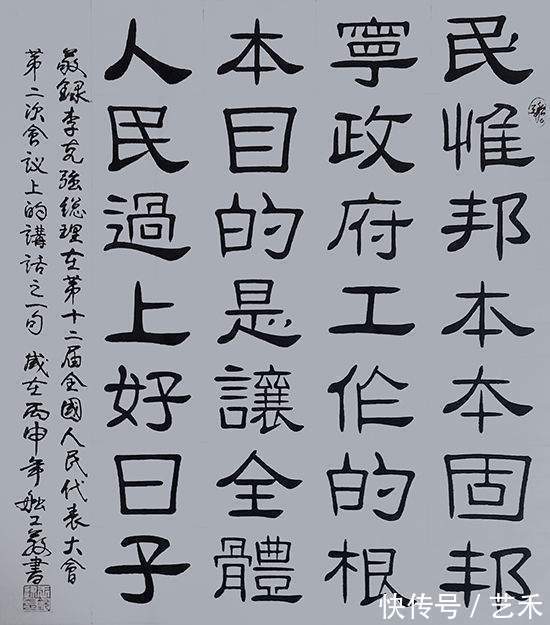 民惟邦本本固邦
寧政府工作的根
本目的是讓全體
人民過上好日子
敬録李克強総理在第十二届全國人民代表大會
第二次會议上的講话之一句 歲在丙申年 敬書
快传号/艺禾